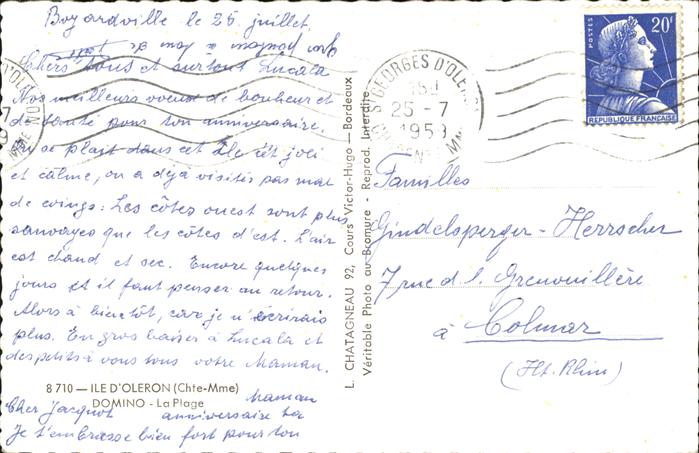 Boyardville le 25 juillet
Chers tous et surtout Lucala
Nos meilleurs voeux de bonheur et
de santé pour ton anniversaire.
on se plait dans cet Ile est joli
et calme, on a déja visités pas mal
de coings: Les côtes ouest sont plus
sauvages que les côtes d'est. L'air
est chaud et sec. Encore quelques
jours et il faut penser au retour.
Alors à bientôt, car je n'écrirais
plus. En gros baiser à Lucala et
des petits à vous tous votre Maman.
8 710 — ILE D'OLERON (Chte-Mme)
DOMINO - La Plage
Maman
Cher Jacquot anniversaire
Je t'embrasse bien fort pour ton
L. CHATAGNEAU 92, Cours Victor-Hugo — Bordeaux
Véritable Photo au Bromure - Reprod. Interdite
ST GEORGES D'OLERON
25-7
1959
POSTES
20F
REPUBLIQUE FRANÇAISE
Familles
Gindelsperger-Herrscher
7 rue d. l. Grenouillère
à Colmar
(Ht. Rhin)